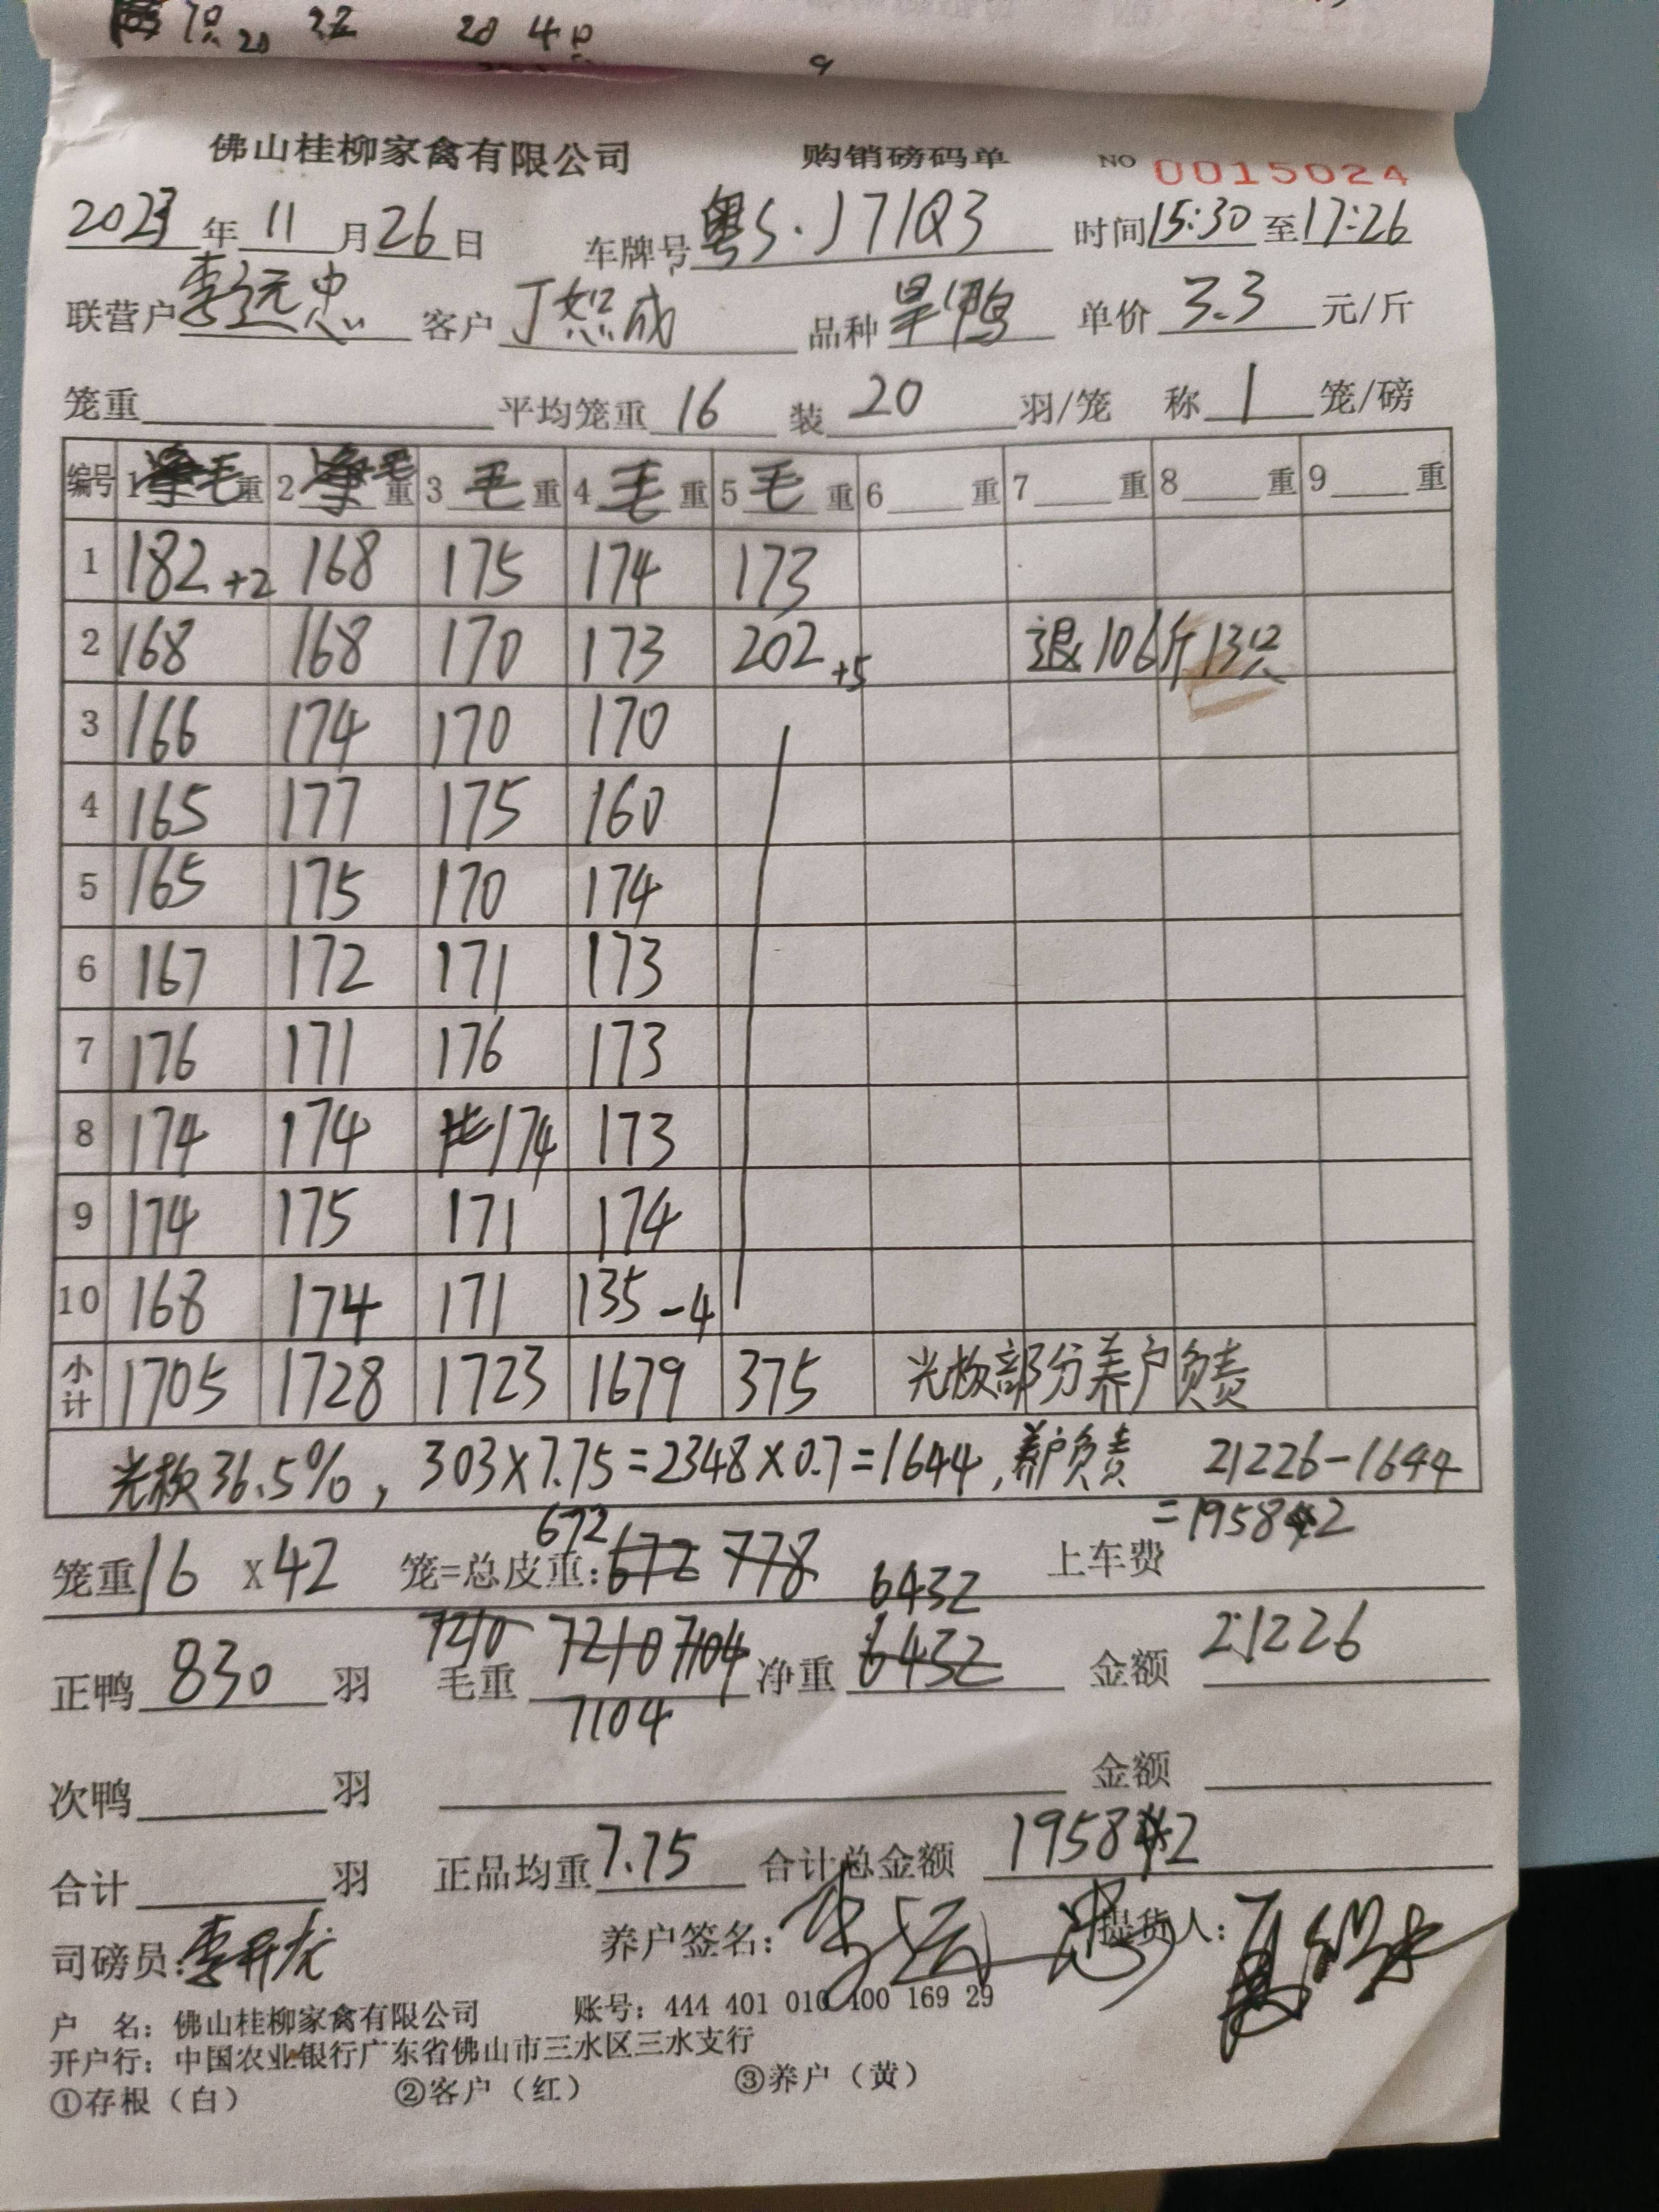 佛山桂柳家禽有限公司 购销磅码单 NO 0015024
2023年11月26日 车牌号粤S·J71Q3 时间15:30至17:26
联营户李远忠 客户丁恕成 品种旱鸭 单价3.3元/斤
笼重 平均笼重16 装20羽/笼 称1笼/磅
编号 1毛重 2毛重 3毛重 4毛重 5毛重 6重 7重 8重 9重
1 182+2 168 175 174 173
2 168 168 170 173 202+5 退106斤13只
3 166 174 170 170
4 165 177 175 160
5 165 175 170 174
6 167 172 171 173
7 176 171 176 173
8 174 174 174 173
9 174 175 171 174
10 168 174 171 135-4
小计 1705 1728 1723 1679 375 光板部分养户负责
光板36.5%,303×7.75=2348×0.7=1644,养户负责 21226-1644
=19582
672
笼重16×42 笼=总皮重:672 778 上车费
7210 6432
正鸭830羽 毛重7210 7104 净重6432 金额21226
7104
次鸭 羽 金额
合计 羽 正品均重7.75 合计总金额19582
司磅员: 养户签名:李远忠 提货人:
户 名:佛山桂柳家禽有限公司 账号:444 401 010 400 169 29
开户行:中国农业银行广东省佛山市三水区三水支行
①存根(白) ②客户(红) ③养户(黄)